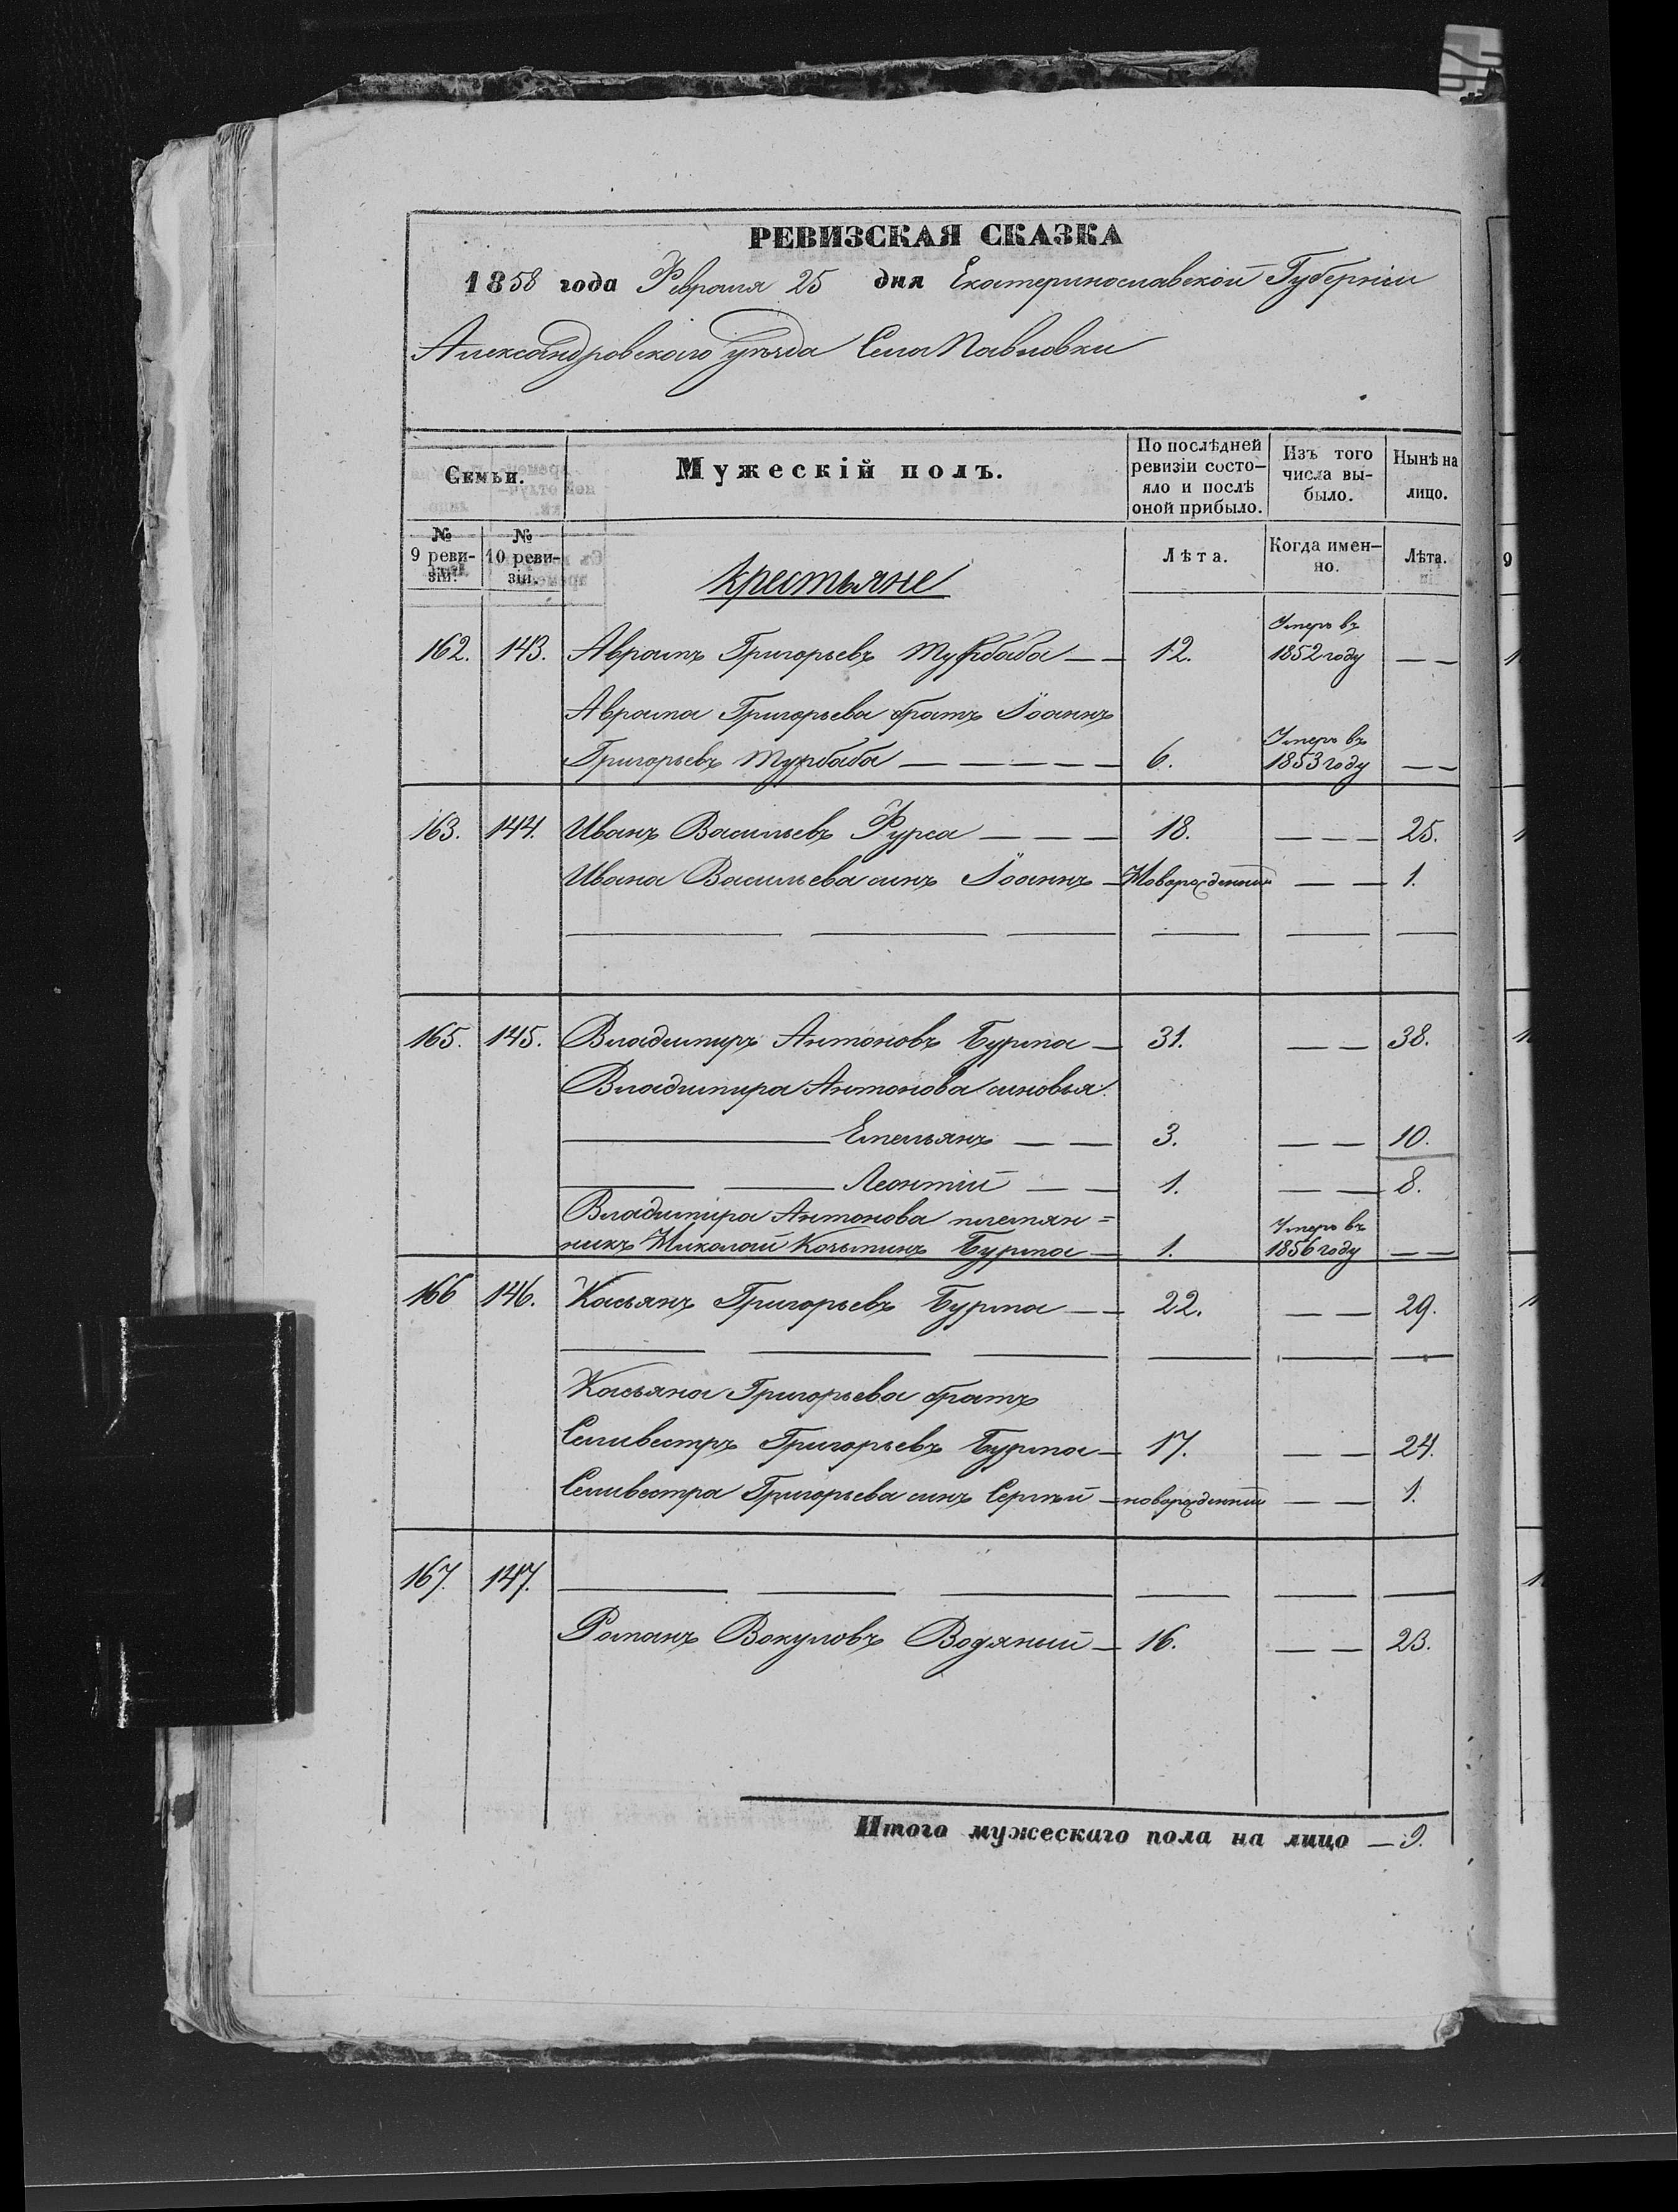 РЕВИЗСКАЯ СКАЗКА
1858 года Февраля 25 дня Екатеринославской Губерніи
Александровскаго уѣзда Села Павловки
Семьи.
Мужескій полъ.
По послѣдней ревизіи состо-
яло и послѣ
оной прибыло.
Изъ того
числа вы-
было.
Нынѣ на
лицо.
№ 9 реви-
зіи.
№ 10 реви-
зіи.
Лѣта.
Когда имен-
но.
Лѣта.
Крестьяне
162. 143. Аврамъ Григорьевъ Турбаба — — 12. Умеръ въ 1852 году — —
Аврама Григорьева братъ Іоаннъ
Григорьевъ Турбаба — — — — — 6. Умеръ въ 1853 году — —
163. 144. Иванъ Васильевъ Фурса — — — 18. — — — 25.
Ивана Васильева синъ Іоаннъ — Новорожденный — — 1.
165. 145. Владимиръ Антоновъ Бурма — 31. — — 38.
Владимира Антонова синовья:
Емельянъ — — 3. — — 10.
Леонтій — — 1. — — 8.
Владимира Антонова племян=
никъ Николай Козьминъ Бурма — 1. Умеръ въ 1856 году — —
166 146. Касьянъ Григорьевъ Бурма — — 22. — — 29.
Касьяна Григорьева братъ
Селивестръ Григорьевъ Бурма — 17. — — 24.
Селивестра Григорьева синъ Сергѣй — новорожденный — — 1.
167. 147.
Романъ Вокуловъ Водяный — 16. — — 23.
Итого мужескаго пола на лицо — 9.